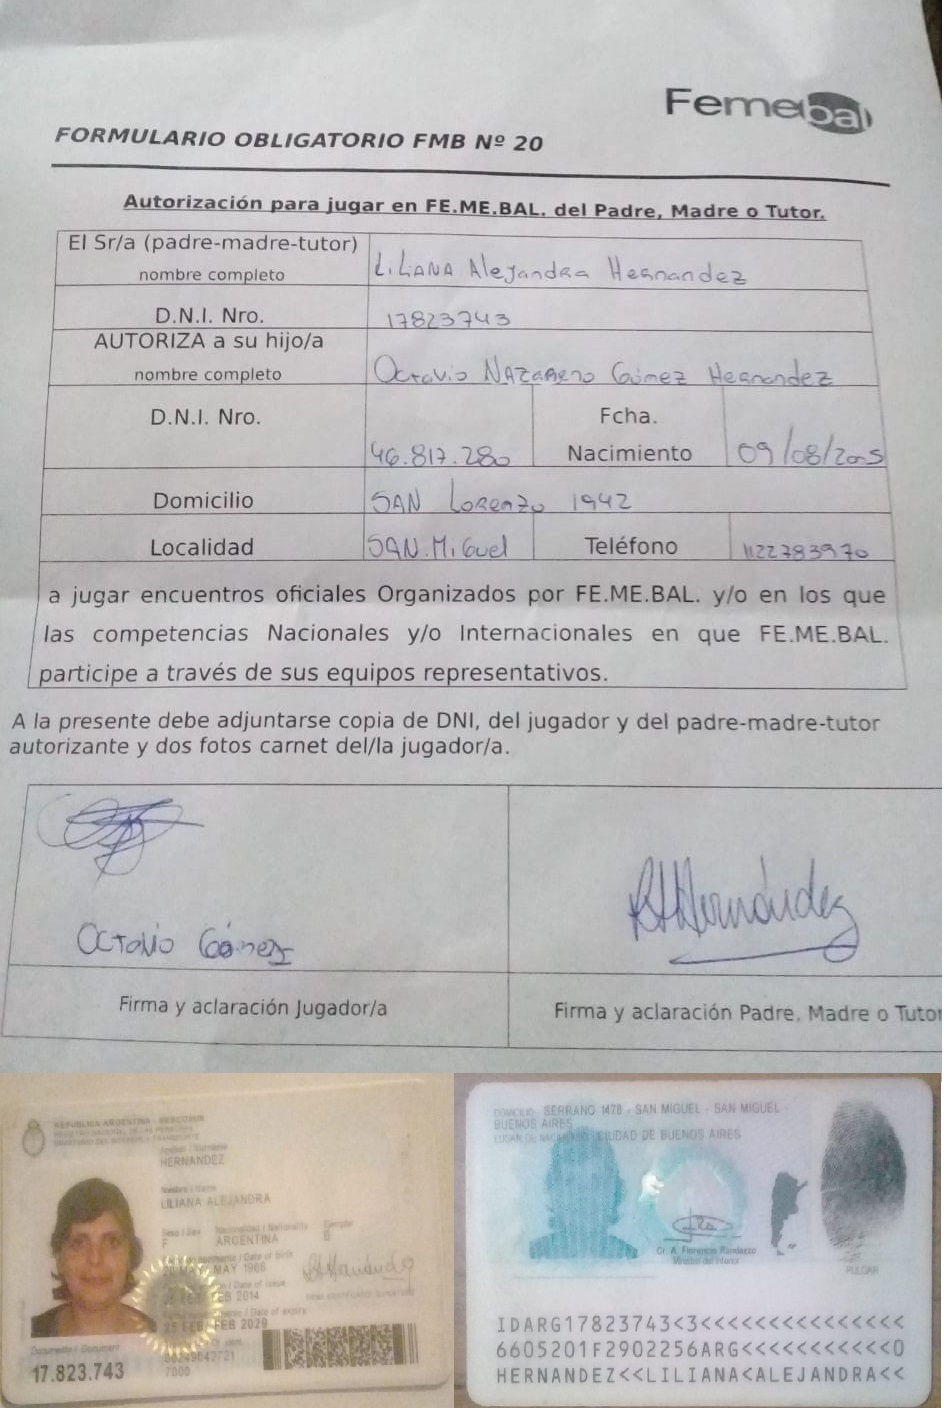 Femebal
FORMULARIO OBLIGATORIO FMB Nº 20
Autorización para jugar en FE.ME.BAL. del Padre, Madre o Tutor.
El Sr/a (padre-madre-tutor)
nombre completo
LiLiANA Alejandra Hernandez
D.N.I. Nro.
17823743
AUTORIZA a su hijo/a
nombre completo
Octavio NAZAReno Gómez Hernandez
D.N.I. Nro.
46.817.280
Fcha.
Nacimiento
09/08/2005
Domicilio
SAN Lorenzo 1942
Localidad
SAN.MiGuel
Teléfono
1122783970
a jugar encuentros oficiales Organizados por FE.ME.BAL. y/o en los que
las competencias Nacionales y/o Internacionales en que FE.ME.BAL.
participe a través de sus equipos representativos.
A la presente debe adjuntarse copia de DNI, del jugador y del padre-madre-tutor
autorizante y dos fotos carnet del/la jugador/a.
Octavio Gómez
Hernández
Firma y aclaración Jugador/a
Firma y aclaración Padre, Madre o Tutor
REPUBLICA ARGENTINA - MERCOSUR
HERNANDEZ
LILIANA ALEJANDRA
Sexo / Sex Nacionalidad / Nationality Ejemplar
F ARGENTINA B
Date of birth
MAY 1966
Date of issue
FEB 2014
Date of expiry
25 FEB/ FEB 2029
Documento / Document
17.823.743
7000
DOMICILIO: SERRANO 1478 - SAN MIGUEL - SAN MIGUEL -
BUENOS AIRES
LUGAR DE NACIMIENTO: CIUDAD DE BUENOS AIRES
Cr. A. Florencio Randazzo
Ministro del Interior
PULGAR
IDARG17823743<3<<<<<<<<<<<<<<<
6605201F2902256ARG<<<<<<<<<<<0
HERNANDEZ<<LILIANA<ALEJANDRA<<